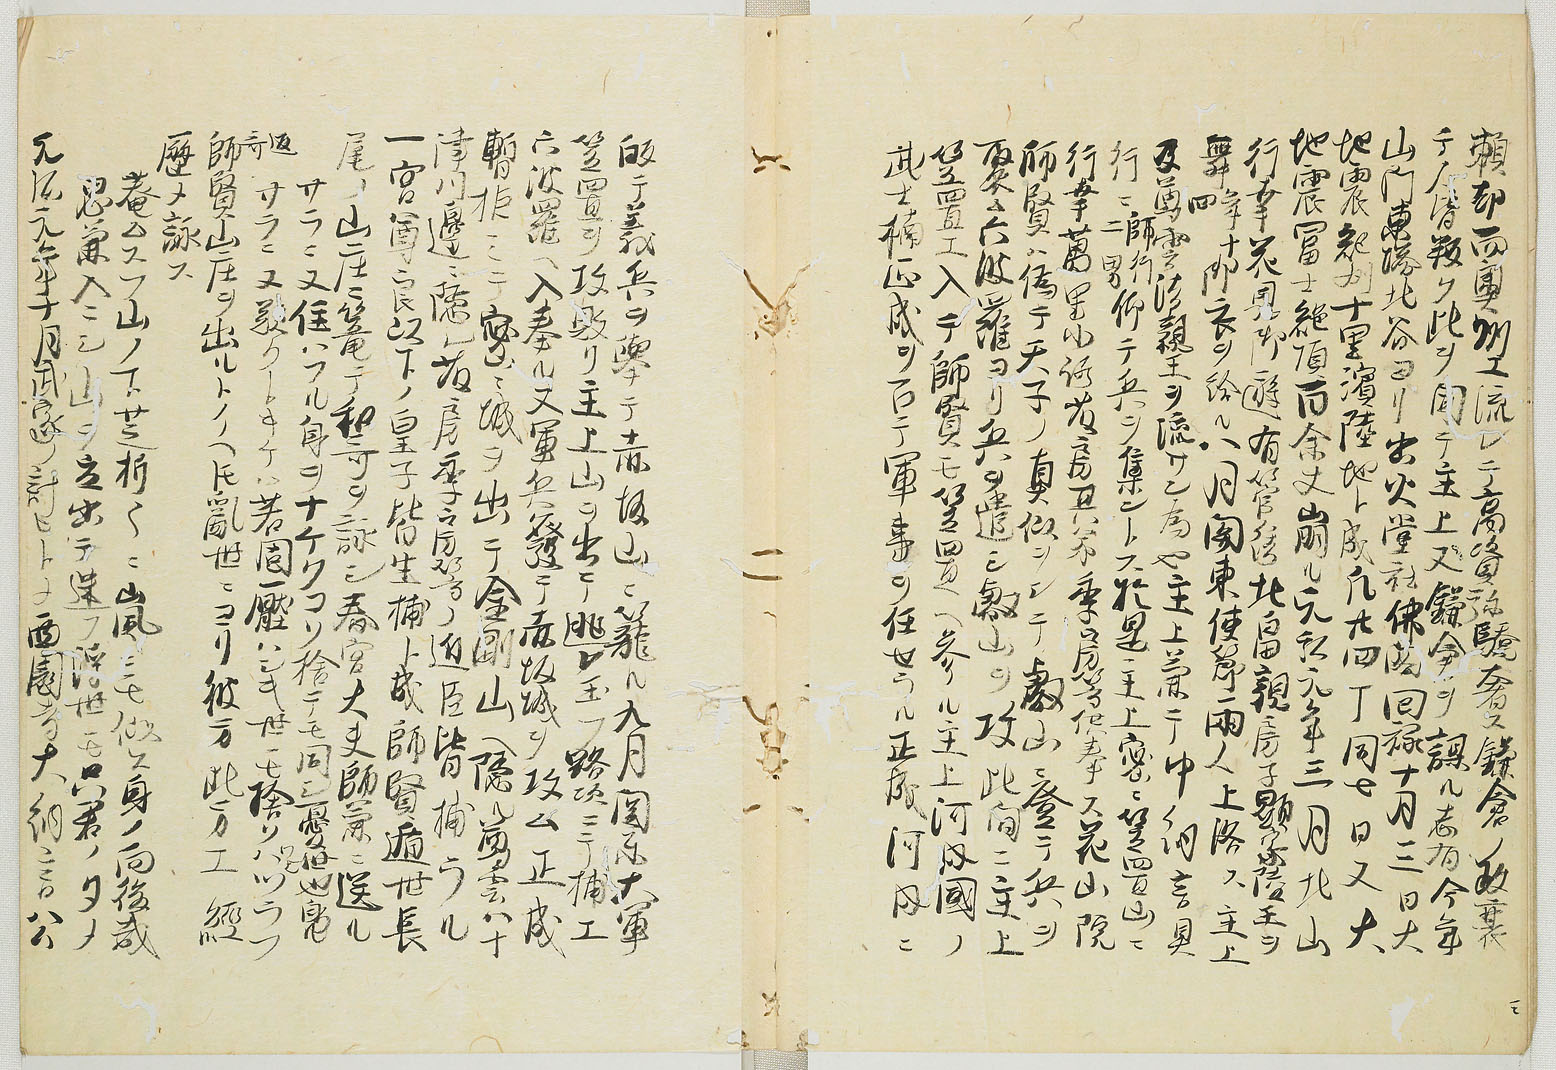 頼却而奥州エ流シテ高資弥驕奢又鎌倉ノ政衰
テ人皆叛ク此ヲ聞テ主上又鎌倉ヲ誤ル志有今年
山門東塔北谷ヨリ出火堂社佛閣回禄十月三日大
地震紀州十里濱陸地ト成凡廿四丁同七日又大
地震冨士絶頂百余丈崩ル元弘元年三月北山
行幸花見御遊有管絃北畠親房子顕家陵王ヲ
舞四年十御衣ヲ給ル八月関東使節両人上洛ス主上
及尊雲法親王ヲ流サン為也主上藁テ中納言具
行ニ師行二男仰テ兵ヲ集ントス於是主上密ニ笠置山ニ
行幸萬里小路藤房其弟季房等供奉ス花山院
師賢ハ偽テ天子ノ真似ヲシテ叡山ニ登テ兵ヲ
聚ム六波羅ヨリ兵ヲ遣シ叡山ヲ攻此間ニ主上
笠置エ入テ師賢モ笠置ヘ参ル主上河内國ノ
武士楠正成ヲ召テ軍事ヲ任せラル正成河内ニ
皈テ義兵ヲ挙テ赤坂山ニ籠ル九月関东大軍
笠置ヲ攻敗リ主上山ヲ出テ逃レ玉フ路次ニテ捕エ
六波羅ヘ入奉ル又軍兵發テ赤坂城ヲ攻ム正成
暫拒ミテ密ニ城ヲ出テ金剛山ヘ隠ル尊雲ハ十
津川邊ニ隠ル藤房季房等ノ近臣皆捕ラル
一宮尊良以下ノ皇子皆生捕ト成師賢遁世長
尾ノ山庄ニ篭テ和哥ヲ詠シ春宮大夫師兼ニ送ル
サラニ又住ハフル身ヲナケクコソ捨テモ同シ憂世也
返哥 サラニ又歎クトキケハ若園一壓ハシモ世ニモ捨リハツラフ
師賢山庄ヲ出ルトノヘ氏亂世ニヨリ彼方此方エ經
歴メ詠ス
菴ムスフ山ノ下芝折〱ニ嵐ニモ似ヌ身ノ向後哉
思兼入ニシ山ヲ立出テ迷フ浮世モ只君ノタメ
元弘元年十月武家ノ計ヒトメ西園寺大納言公